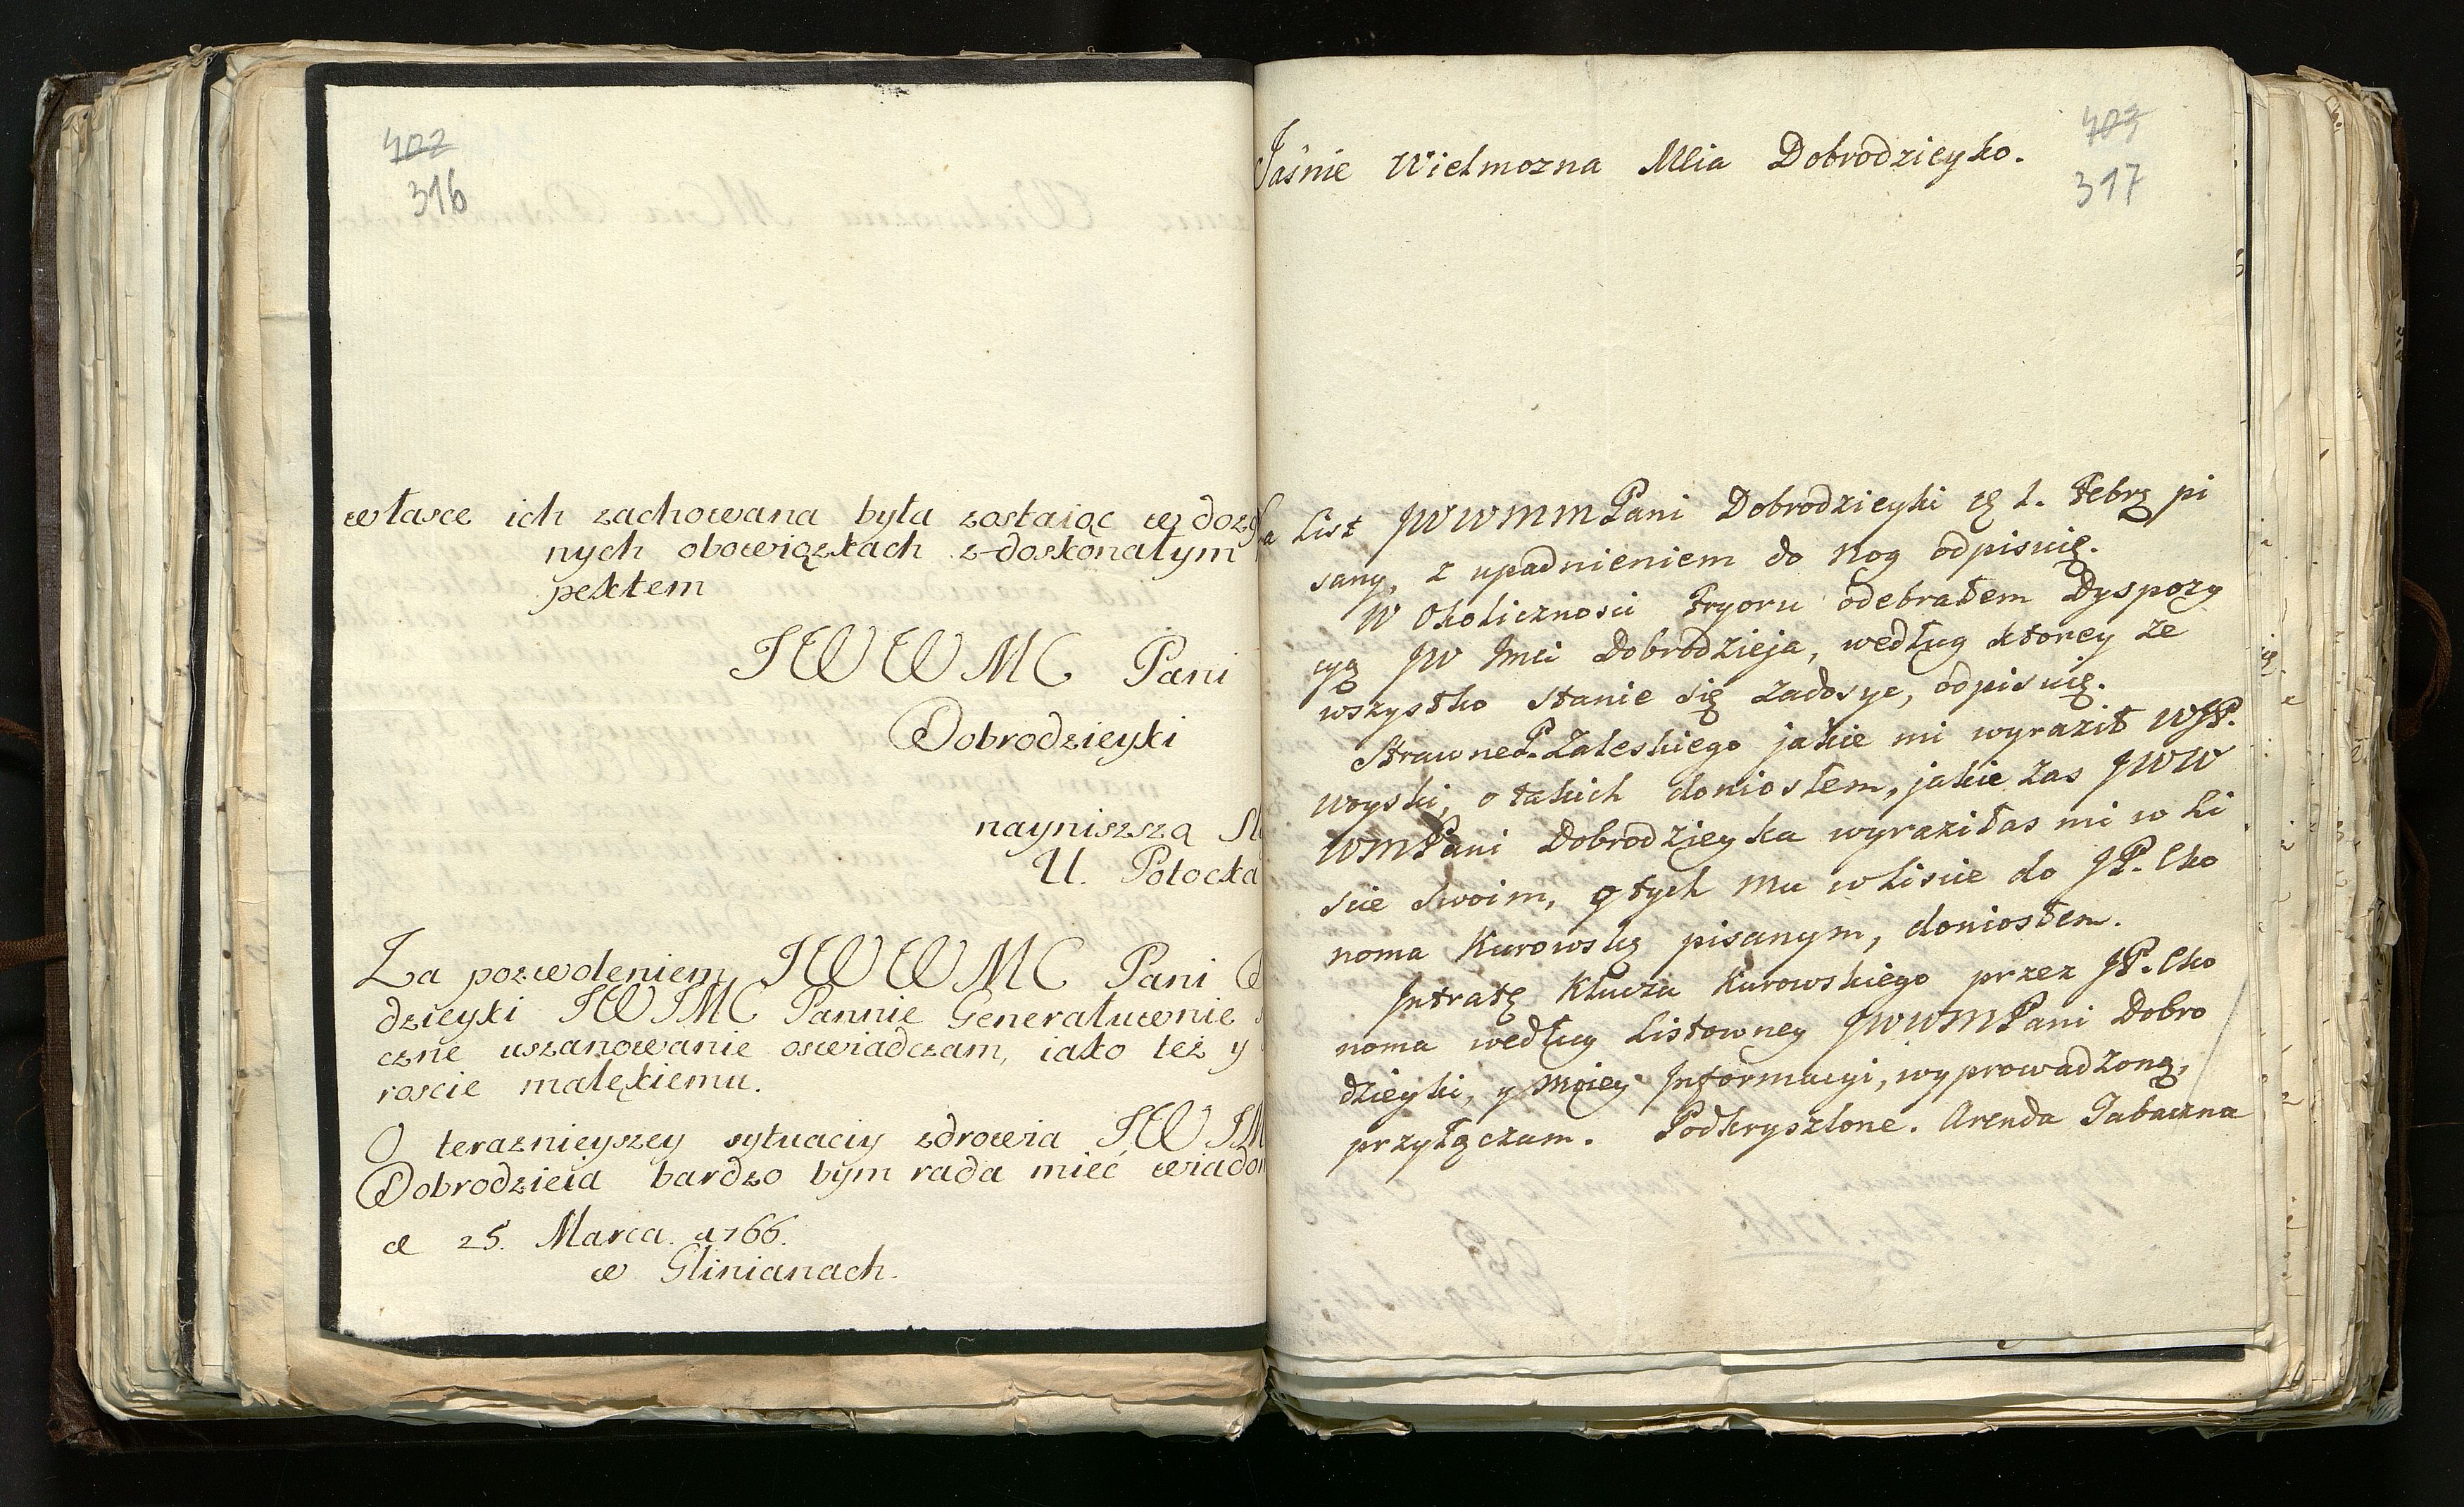 402
316
własce ich zachowana była zostaiąc w doży
nych obowiązkach z doskonałym
pektem
JWWMC Pani
Dobrodzieyki
nayniszszą
U. Potocka
Za pozwoleniem JWWMC Pani
dzieyki JWJMC Pannie Generałuwnie
czne uszanowanie oswiadczam, iako też y
roscie małękiemu.
O teraznieyszey sytuaciy zdrowia JWJM
Dobrodzieia bardzo bym rada mieć wiado
d 25. Marca. 1766.
w Glinianach.
403
317
Jaśnie Wielmozna Mcia Dobrodzieyko.
Na List JWWMMPani Dobrodzieyki 1. Febrę pi
sany, z upadnieniem do nog odpisuię.
W Okolicznosci Fryoru odebrałem Dyspozy
cyą JW Jmci Dobrodzieja, według ktorey ze
wszystko stanie się zadosyc, odpisuię.
Strawne P. Zaleskiego jakie mi wyraził WJP.
Woyski, o takich doniosłem, jakie zas JWW
WMPani Dobrodzieyka wyraziłas mi w Li
scie Swoim, o tych mu w Liscie do JP. Eko
noma Kurowskę pisanym, doniosłem.
Intratę Klucza Kurowskiego przez JP. Eko
noma według Listowney JWWMPani Dobro
dzieyki, y moiey Informacyi, wyprowadzoną,
przyłączam. Podkryszlone. Arenda Tabaczna